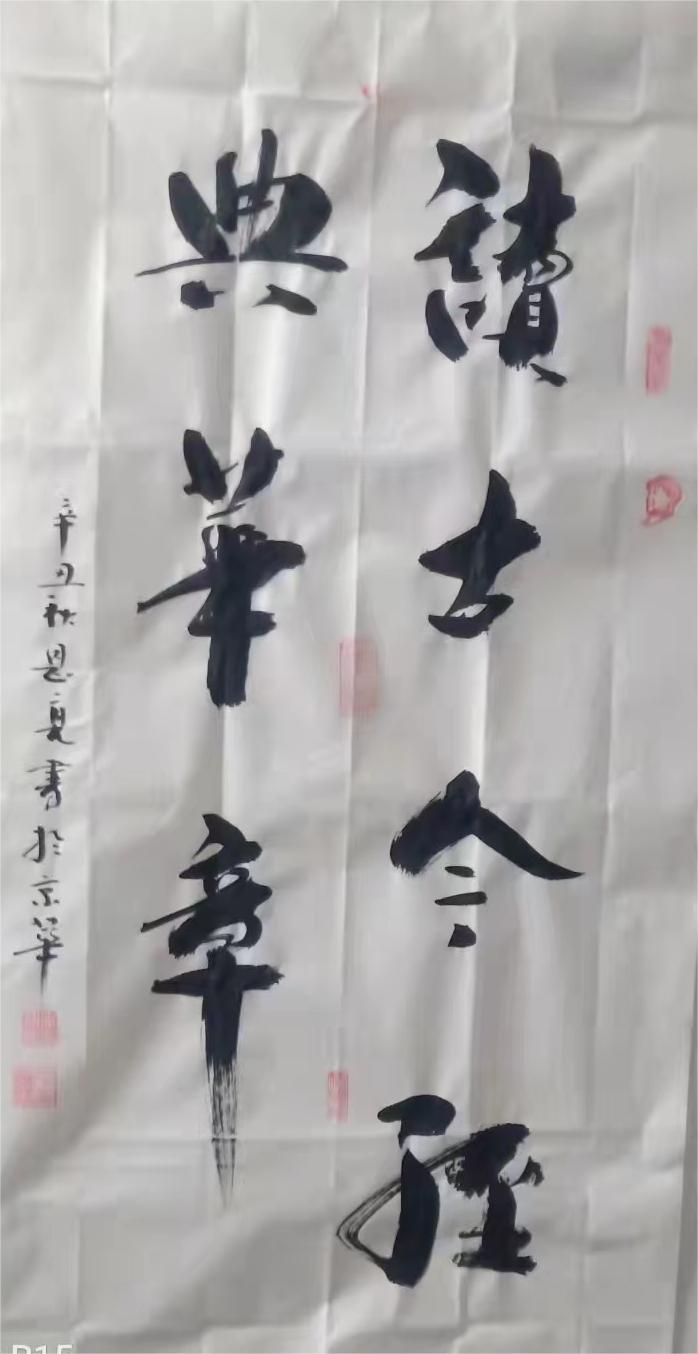 讀古今經
典華章
辛丑秋恩亮書於京華